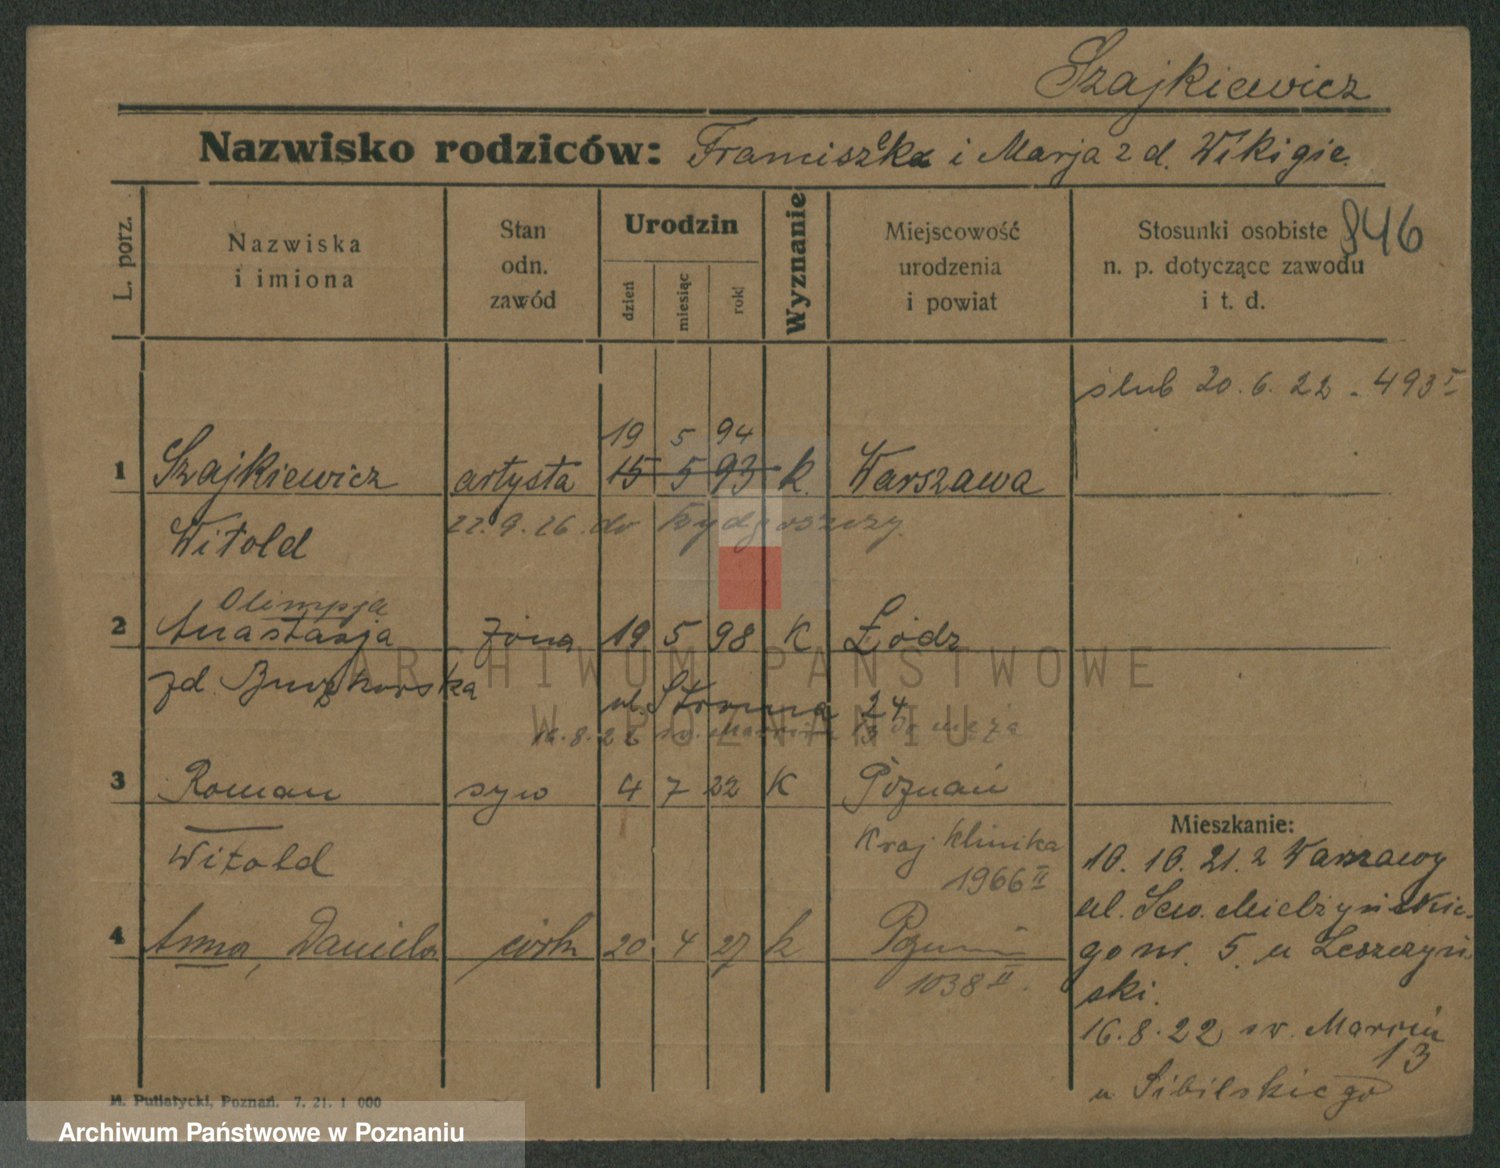 Szajkiewicz
Nazwisko rodziców: Franciszek i Marja z d. Wikigie.
L. porz.
Nazwiska
i imiona
Stan
odn.
zawód
Urodzin
dzień
miesiąc
rok
Wyznanie
Miejscowość
urodzenia
i powiat
Stosunki osobiste
n. p. dotyczące zawodu
i t. d.
846
ślub 20.6.22 - 493 I
19 5 94
1 Szajkiewicz artysta 15 5 93 k. Warszawa
Witold
22.9.26. do Bydgoszczy.
Olimpja
2 Anastazja żona 19 5 98 K Łódz
zd.
ul. Stroma 24
16.8.22 św. Marcin 13 do męża
3 Roman syn 4 7 22 K Poznań
Witold
Kraj Klinika
1966 II
4 Anna, Daniela córk 20 4 27 k Poznań
1038 II.
Mieszkanie:
10. 10. 21. z Warszawy
ul. Sew. Mielżyńskie-
go nr. 5. u Leszczyń-
ski.
16.8.22 św. Marcin
13
u Sibilskiego
M. Putiatycki, Poznań. 7. 21. 1 000
ARCHIWUM PAŃSTWOWE
W POZNANIU
Archiwum Państwowe w Poznaniu